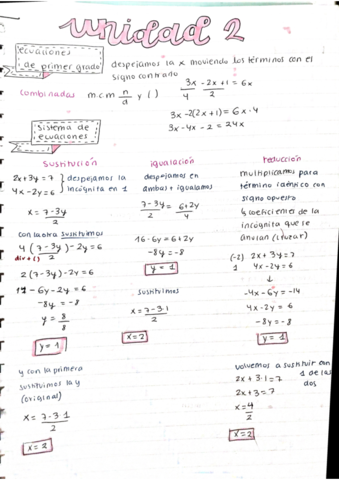 unidad 2
ecuaciones de primer grado
despejamos la x moviendo los términos con el signo contrario
combinadas m.c.m n/d y ( )
3x/4 - 2x+1/2 = 6x
3x - 2(2x+1) = 6x·4
3x - 4x - 2 = 24x
Sistema de ecuaciones
SUSTITUCIÓN
2x+3y=7
4x-2y=6
despejamos la incógnita en 1
x = 7-3y/2
con la otra sustituimos
4(7-3y/2)-2y=6
2(7-3y)-2y=6
-6y-2y=6
-8y=-8
y = 8/8
y=1
y con la primera sustituimos la y (original)
x = 7-3·1/2
x=2
igualación
despejamos en ambas e igualamos
7-3y/2 = 6+2y/4
16-6y=6+2y
-8y=-8
y=1
sustituimos
x = 7-3·1/2
x=2
reducción
multiplicamos para término idéntico con signo opuesto
coeficientes de la incógnita que le anulan (cruzar)
(-2) 2x+3y=7
1 4x-2y=6
↓
-4x-6y=-14
4x-2y=6
-8y=-8
y=1
volvemos a sustituir en 1 de las dos
2x+3·1=7
2x+3=7
x=4/2
x=2